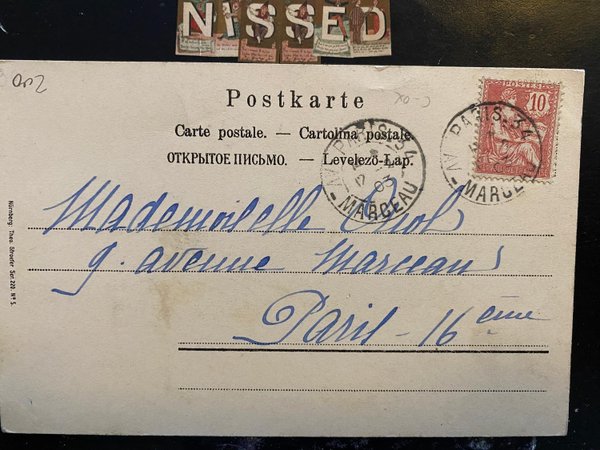 NISSED
Postkarte
Carte postale. — Cartolina postale.
ОТКРЫТОЕ ПИСЬМО. — Levelező-Lap.
POSTES
10
PARIS. 34
AV. MARCEAU
03
PARIS. 34
AV. MARCEAU
Mademoiselle
9. avenue Marceau
Paris - 16 ème
Nürnberg: Theo. Stroefer Ser. 220 Nº 5.